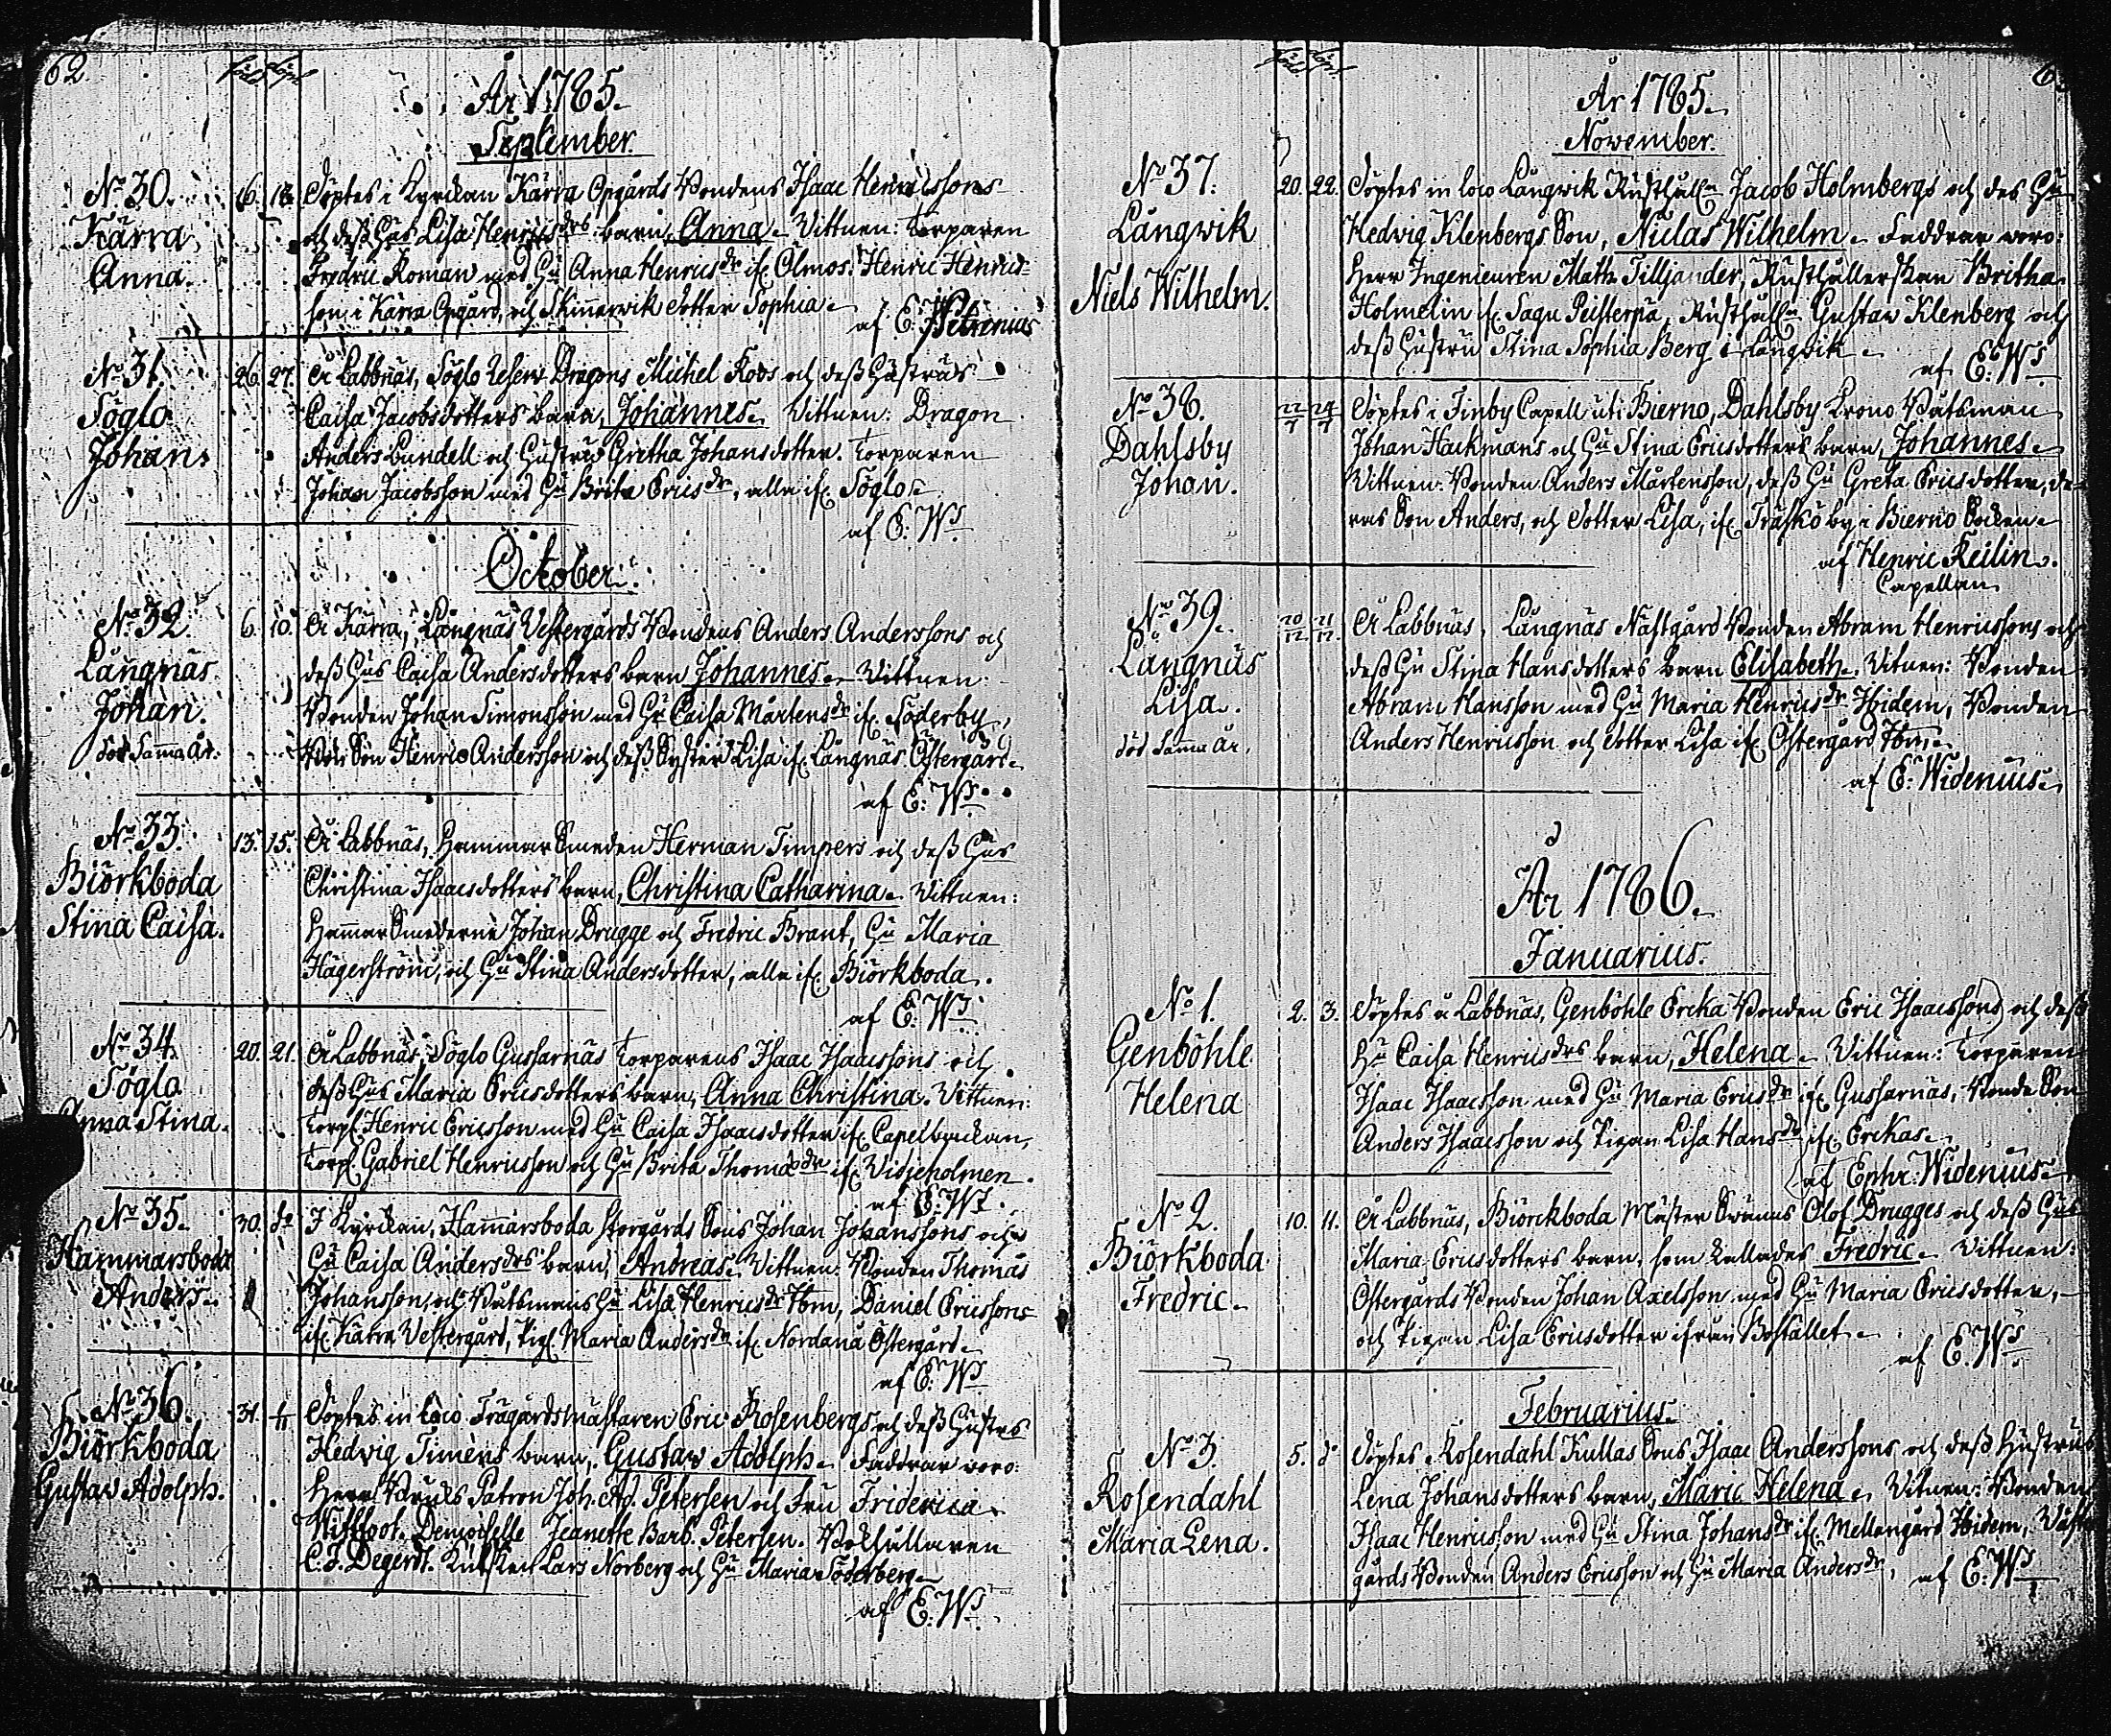 62
född döpt
År 1785.
September.
No 30.
Kärra
Anna.
16. 18. Döptes i Kyrckan Kärra Opgårds Bondens Isaac Henricssons
och dess Hus Lisa Henricsdrs barn, Anna. Vittnen: Torparen
Fredric Roman med Hu Anna Henricsdr if. Ölmos. Henric Henrics-
son i Kärra Opgård, och Skinnarvik dotter Sophia.
af E. Widenius
No 31.
Söglo
Johan.
26. 27. Å Labbnäs, Söglo Reserv Dragons Michel Roos och dess Hustrus
Caisa Jacobsdotters barn, Johannes. Vittnen: Dragon
Anders Lundell och Hustru Gretha Johansdotter. Torparen
Johan Jacobsson med Hu Brita Ericsdr, alla if. Söglo.
af E. Ws
October.
No 32.
Långnäs
Johan.
död samma år.
6. 10. Å Kärra, Långnäs Vestergårds Bondens Anders Anderssons och
dess Hus Caisa Andersdotters barn Johannes. Vittnen
Bonden Johan Simonsson med Hu Caisa Mårtensdr if. Söderby,
Bonde Son Henric Andersson och dess Syster Lisa if. Långnäs Östergård.
af E: Ws
No 33.
Biörkboda
Stina Caisa.
13. 15. Å Labbnäs, Hammar Smeden Herman Timpers och dess Hus
Christina Isaacsdotters barn, Christina Catharina. Vittnen:
Hammar Smederne Johan Drugge och Fredric Brant, Hu Maria
Hägerström, och Hu Stina Andersdotter, alla if. Biörkboda.
af E. Ws
No 34.
Söglo
Anna Stina.
20. 21. Å Labbnäs Söglo Gussarnäs Torparens Isaac Isaacssons och
dess Hus Maria Ericsdotters barn, Anna Christina. Vittnen:
Torp. Henric Ericsson med Hu Caisa Isaacsdotter if. Capelbackan,
Torp. Gabriel Henricsson och Hu Brita Thomædr if. Vidjeholmen.
af E. Ws
No 35.
Hammarsboda
Anders.
30. do I Kyrckan, Hammarsboda Storgårds Sons Johan Johanssons och
Hu Caisa Andersdrs barn, Andreas. Vittnen: Bonden Thomas
Johansson, och Båtsmans Hu Lisa Henricsdr Ibm, Daniel Ericssons
if. Kärra Vestergård, Pig. Maria Andersdr if. Nordanå Östergård.
af E. Ws
No 36.
Biörkboda
Gustav Adolph.
31. 1/11 Döptes in loco Trägårdsmästaren Eric Rosenbergs och dess Hustrus
Hedvig Timens barn, Gustav Adolph. Faddrar woro:
Herr Bruks Patron Joh. Ad. Petersen och Fru Fridericia
Demoiselle Jeanette Barb. Petersen. Bokhållaren
C. J. Degerdt. Lars Norberg och Hu Maria Söderberg.
af E. Ws
född döpt
År 1785.
November.
No 37.
Långwik
Niels Wilhelm.
20. 22. Döptes in loco Långwik Rusthålln Jacob Holmbergs och des Hu
Hedvig Klenbergs Son, Niclas Wilhelm. Faddrar woro:
Herr Ingenieuren Math. Tilljander, Rusthållerskan Britha
Holmelin if. Sagu Peisterpä, Rusthålln Gustav Klenberg och
dess Hustru Stina Sophia Berg i Långvik.
af E: Ws
No 38.
Dahlsby
Johan.
Döptes i Finby Capell uti Bierno, Dahlsby Krono Båtsman
Johan Hackmans och Hu Stina Ericsdotters barn, Johannes.
Vittnen: Bonden Anders Mårtensson, dess Hu Greta Ericsdotter, de-
ras Son Anders, och dotter Lisa, if. Träskö by i Bierno Socken.
af Henric Keilin.
Capellan
No 39.
Långnäs
Lisa.
död samma år.
20/12 21/12. Å Labbnäs, Långnäs Nästgård Bonden Abram Henricssons och
dess Hu Stina Hansdotters barn Elisabeth. Vitnen: Bonden
Abram Hansson med Hu Maria Henricsdr Ibidem, Bonden
Anders Henricsson och dotter Lisa if. Östergård Ibm.
af E: Widenius.
År 1786.
Januarius.
No 1.
Genböhle
Helena
2. 3. Döptes å Labbnäs, Genböhle Ercka Bonden Eric Isaacssons och dess
Hu Caisa Henricsdrs barn, Helena. Vittnen: Torparen
Isaac Isaacsson med Hu Maria Ericsdr if. Gussarnäs, Bonde Son
Anders Isaacsson och Pigan Lisa Hansdr if. Erckas.
af Ephr. Widenius.
No 2.
Biörkboda
Fredric.
10. 11. Å Labbnäs, Biörckboda Mäster Svenns Olof Drugges och dess Hus
Maria Ericsdotters barn, som kallades Fredric. Vittnen:
Östergårds Bonden Johan Axelsson med Hu Maria Ericsdotter,
och Pigan Lisa Ericsdotter ifrån Bostället.
af E. Ws
Februarius.
No 3.
Rosendahl
Maria Lena.
5. do Döptes Rosendahl Kullas Sons Isaac Anderssons och dess Hustrus
Lena Johansdotters barn, Maria Helena. Vitnen: Bonden
Isaac Henricsson med Hu Stina Johansdr if. Mellangård Ibidem, Väster
gårds Bonden Anders Ericsson och Hu Maria Andersdr,
af E: Ws